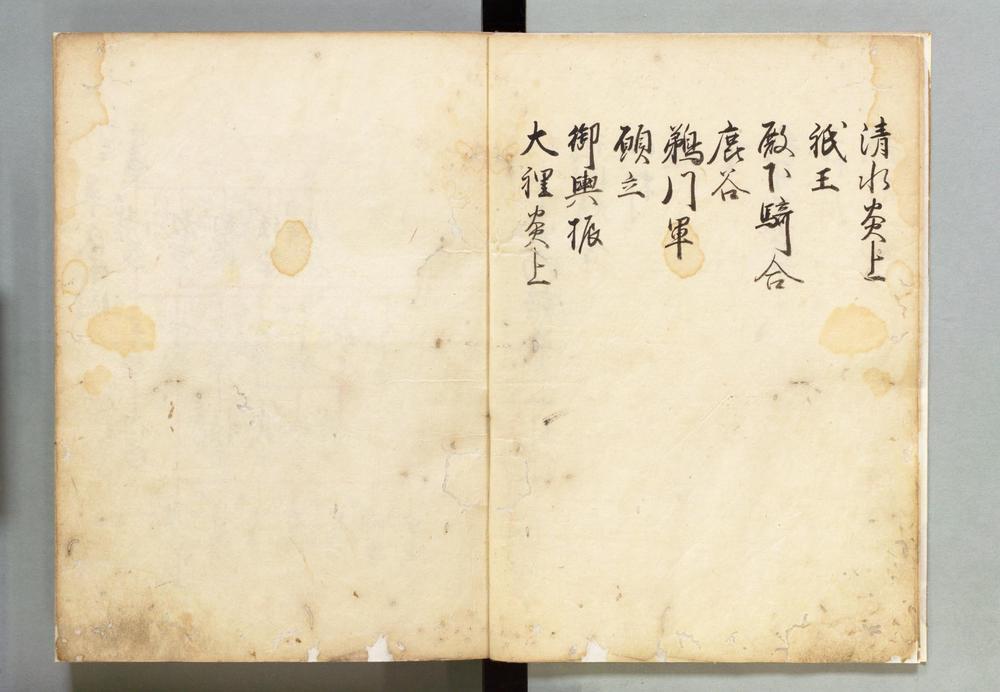 清水炎上
祇王
殿下騎合
鹿谷
鵜川軍
願立
御輿振
大裡炎上